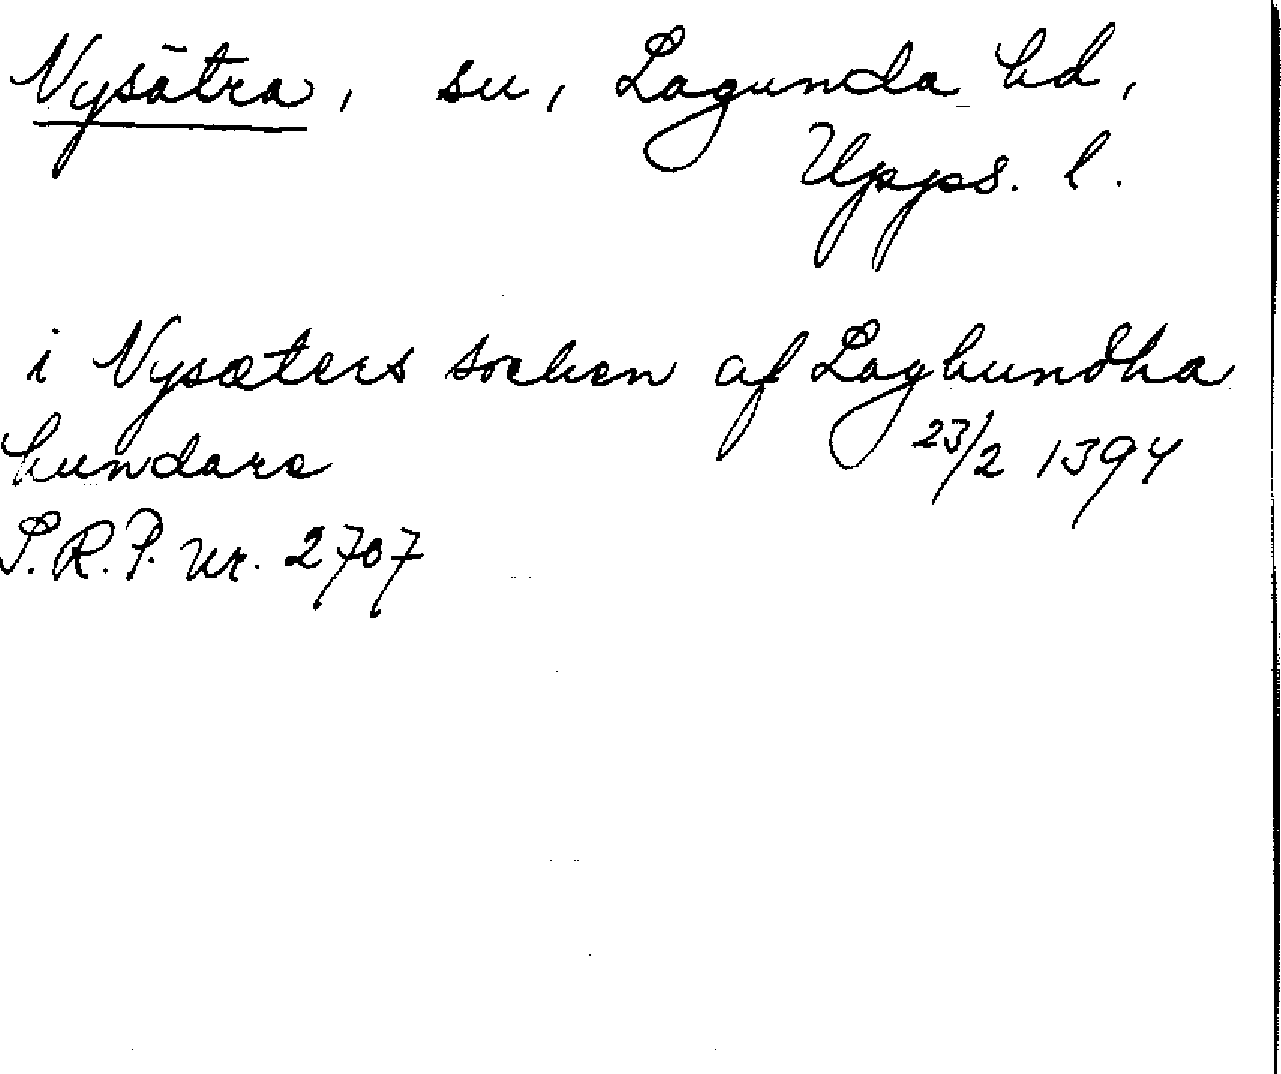 Nysätra, sn, Lagunda hd,
Upps. l.
i Nysæters sochen af Laghundha
hundare 23/2 1394
S.R.P. nr. 2707